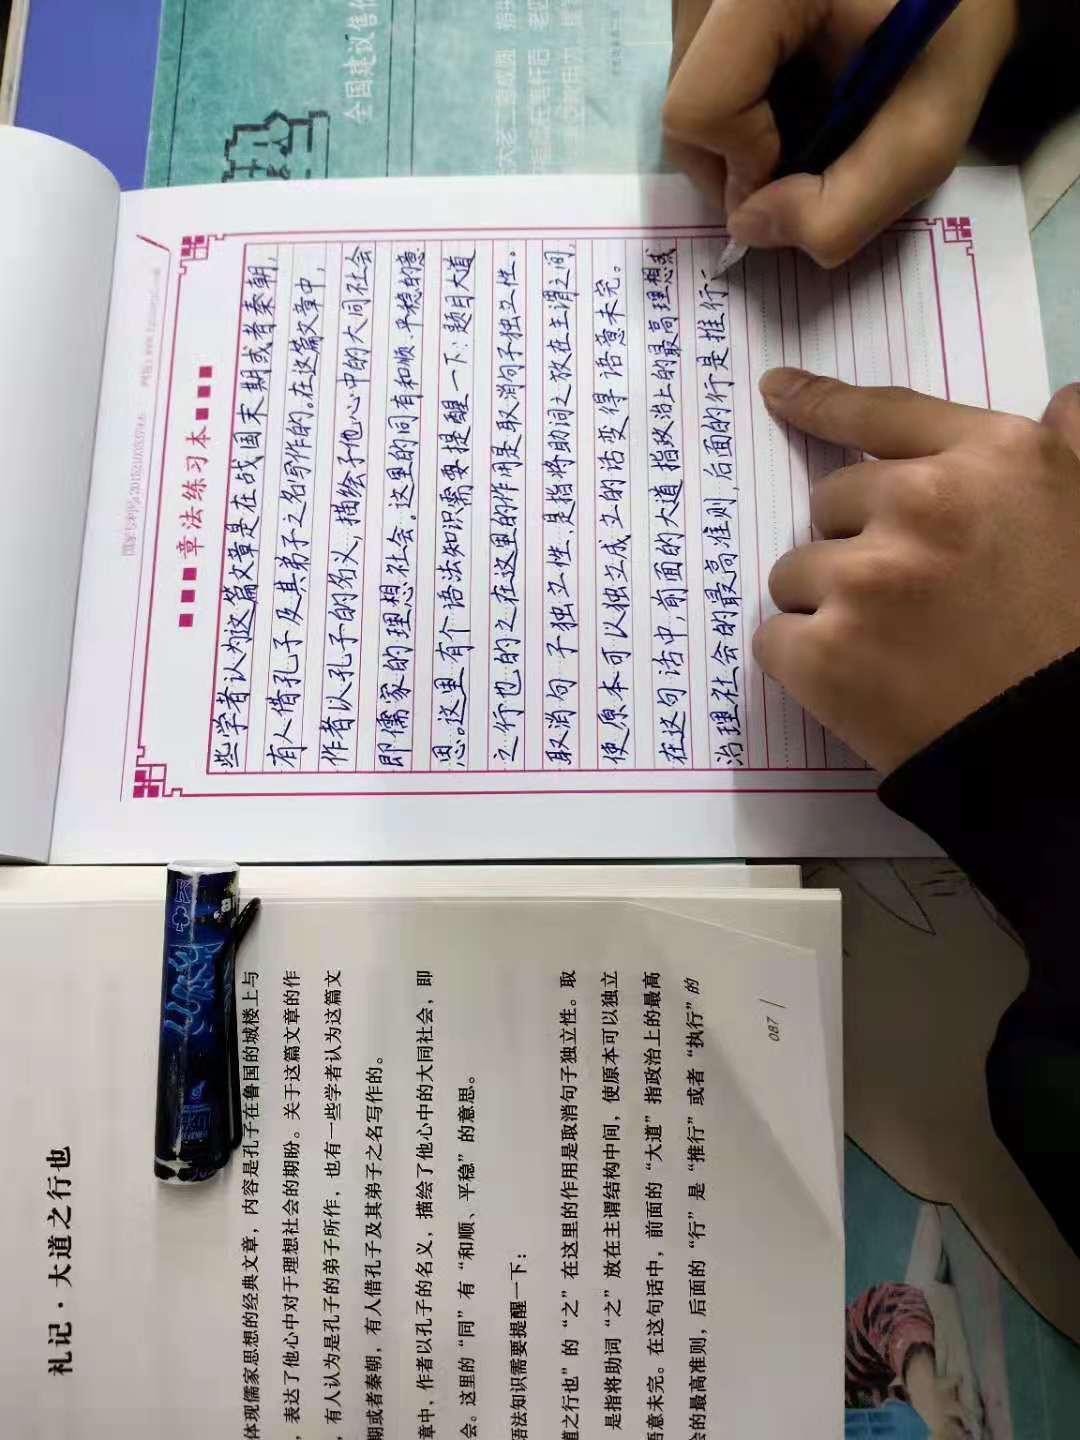 全国建议售价
国家专利号:201230203537.4
章法练习本
些学者认为这篇文章是在战国末期或者秦朝,
有人借孔子及其弟子之名写作的。在这篇文章中,
作者认孔子的名义,描绘了他心中的大同社会
即儒家的理想社会。这里的同有和顺、平稳的意
思。这里有个语法知识需要提醒一下:题目大道
之行也的之在这里的作用是取消句子独立性。
取消句子独立性,是指将助词之放在主谓之间,
使原本可以独立成立的话变得语意未完。
在这句话中,前面的大道指政治上的最高理想或
治理社会的最高准则,后面的行是推行
礼记·大道之行也
体现儒家思想的经典文章,内容是孔子在鲁国的城楼上与
,表达了他心中对于理想社会的期盼。关于这篇文章的作
,有人认为是孔子的弟子所作,也有一些学者认为这篇文
期或者秦朝,有人借孔子及其弟子之名写作的。
章中,作者以孔子的名义,描绘了他心中的大同社会,即
会。这里的“同”有“和顺、平稳”的意思。
语法知识需要提醒一下:
道之行也”的“之”在这里的作用是取消句子独立性。取
是指将助词“之”放在主谓结构中间,使原本可以独立
语意未完。在这句话中,前面的“大道”指政治上的最高
会的最高准则,后面的“行”是“推行”或者“执行”的
087